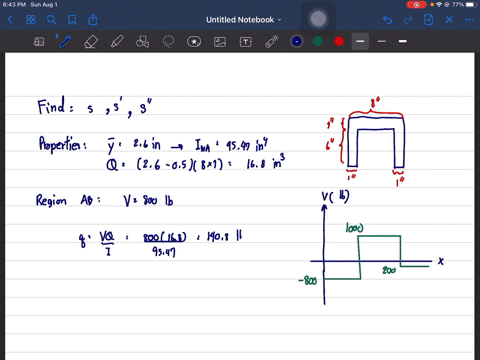 6:43 PM Sun Aug 1
77%
Untitled Notebook
Find: s, s', s"
Properties: ȳ = 2.6 in → I_NA = 95.47 in⁴
Q = (2.6 - 0.5)(8×1) = 16.8 in³
Region AB: V = 800 lb
q = VQ/I = 800(16.8)/95.47 = 140.8 lb
8"
1"
6"
1"
1"
V( lb)
1000
200
-800
x